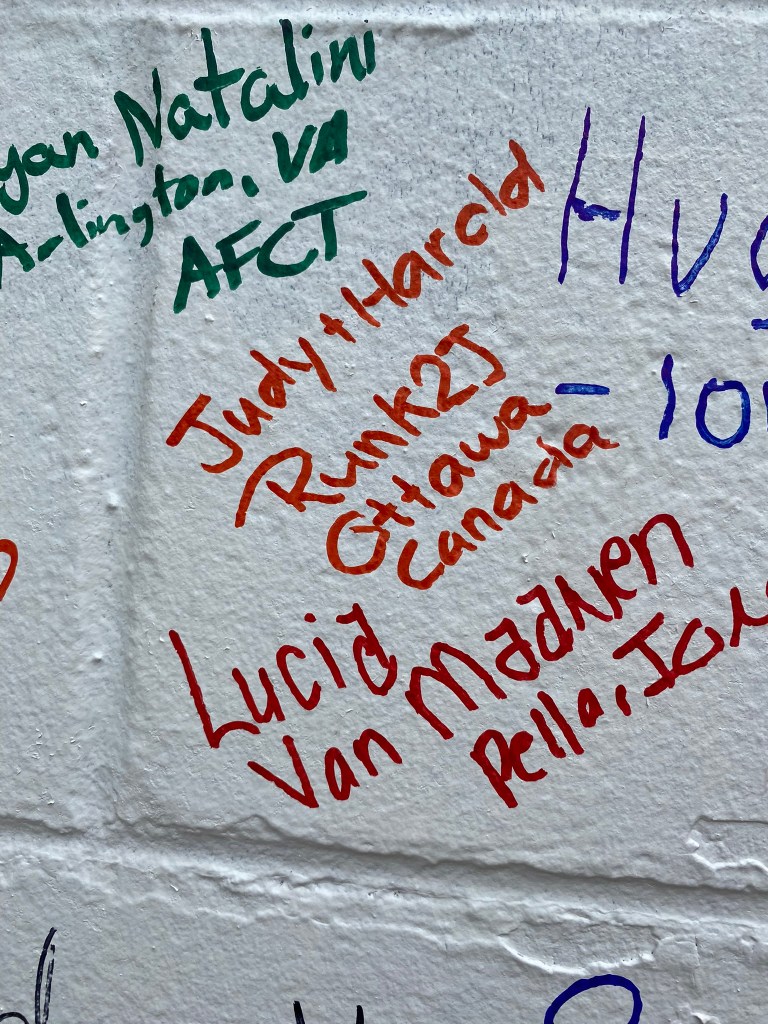 yan Natalini
Arlington, VA
AFCT
Judy + Harold
Runk2J
Ottawa
Canada
Hug
- 10
Lucia
Van Maawen
Pella, Iow